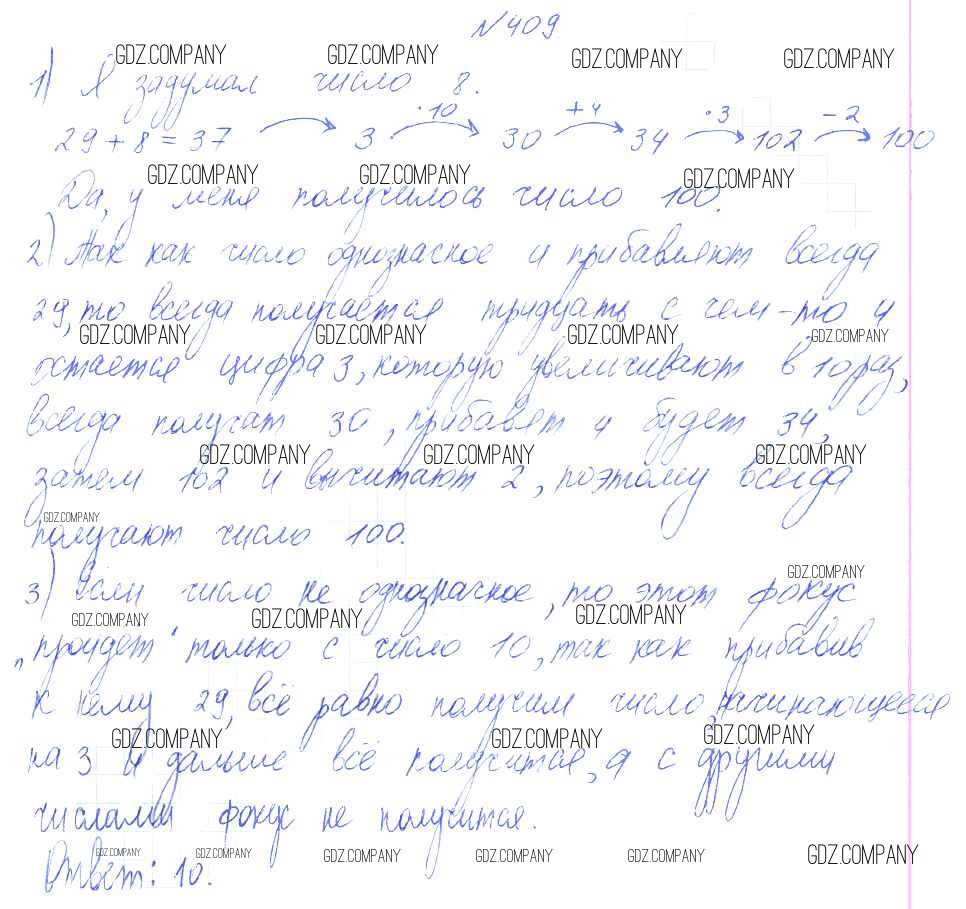 №409
GDZ.COMPANY GDZ.COMPANY GDZ.COMPANY GDZ.COMPANY
1) Я задумал число 8.
·10 +4 ·3 -2
29 + 8 = 37 3 30 34 102 100
GDZ.COMPANY GDZ.COMPANY GDZ.COMPANY
Да, у меня получилось число 100.
2) Так как число однозначное и прибавляют всегда
29, то всегда получается тридцать с чем-то и
GDZ.COMPANY GDZ.COMPANY GDZ.COMPANY GDZ.COMPANY
остается цифра 3, которую увеличивают в 10 раз,
всегда получат 30, прибавят 4 будет 34,
GDZ.COMPANY GDZ.COMPANY GDZ.COMPANY
затем 102 и вычитают 2, поэтому всегда
GDZ.COMPANY
получают число 100.
GDZ.COMPANY
3) Если число не однозначное, то этот фокус
GDZ.COMPANY GDZ.COMPANY GDZ.COMPANY
„пройдет" только с число 10, так как прибавив
к нему 29, всё равно получим число, начинающееся
GDZ.COMPANY GDZ.COMPANY GDZ.COMPANY
на 3 и дальше всё получится, а с другими
числами фокус не получится.
GDZ.COMPANY GDZ.COMPANY GDZ.COMPANY GDZ.COMPANY GDZ.COMPANY GDZ.COMPANY
Ответ: 10.